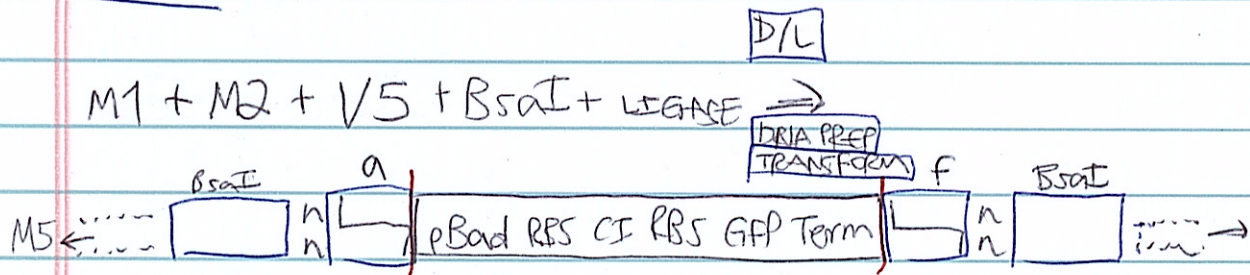 D/L
M1 + M2 + V5 + BsaI + LIGASE ⇒
DNA PREP
TRANSFORM
BsaI a f BsaI
M5 n pBad RBS CI RBS GFP Term n
n n